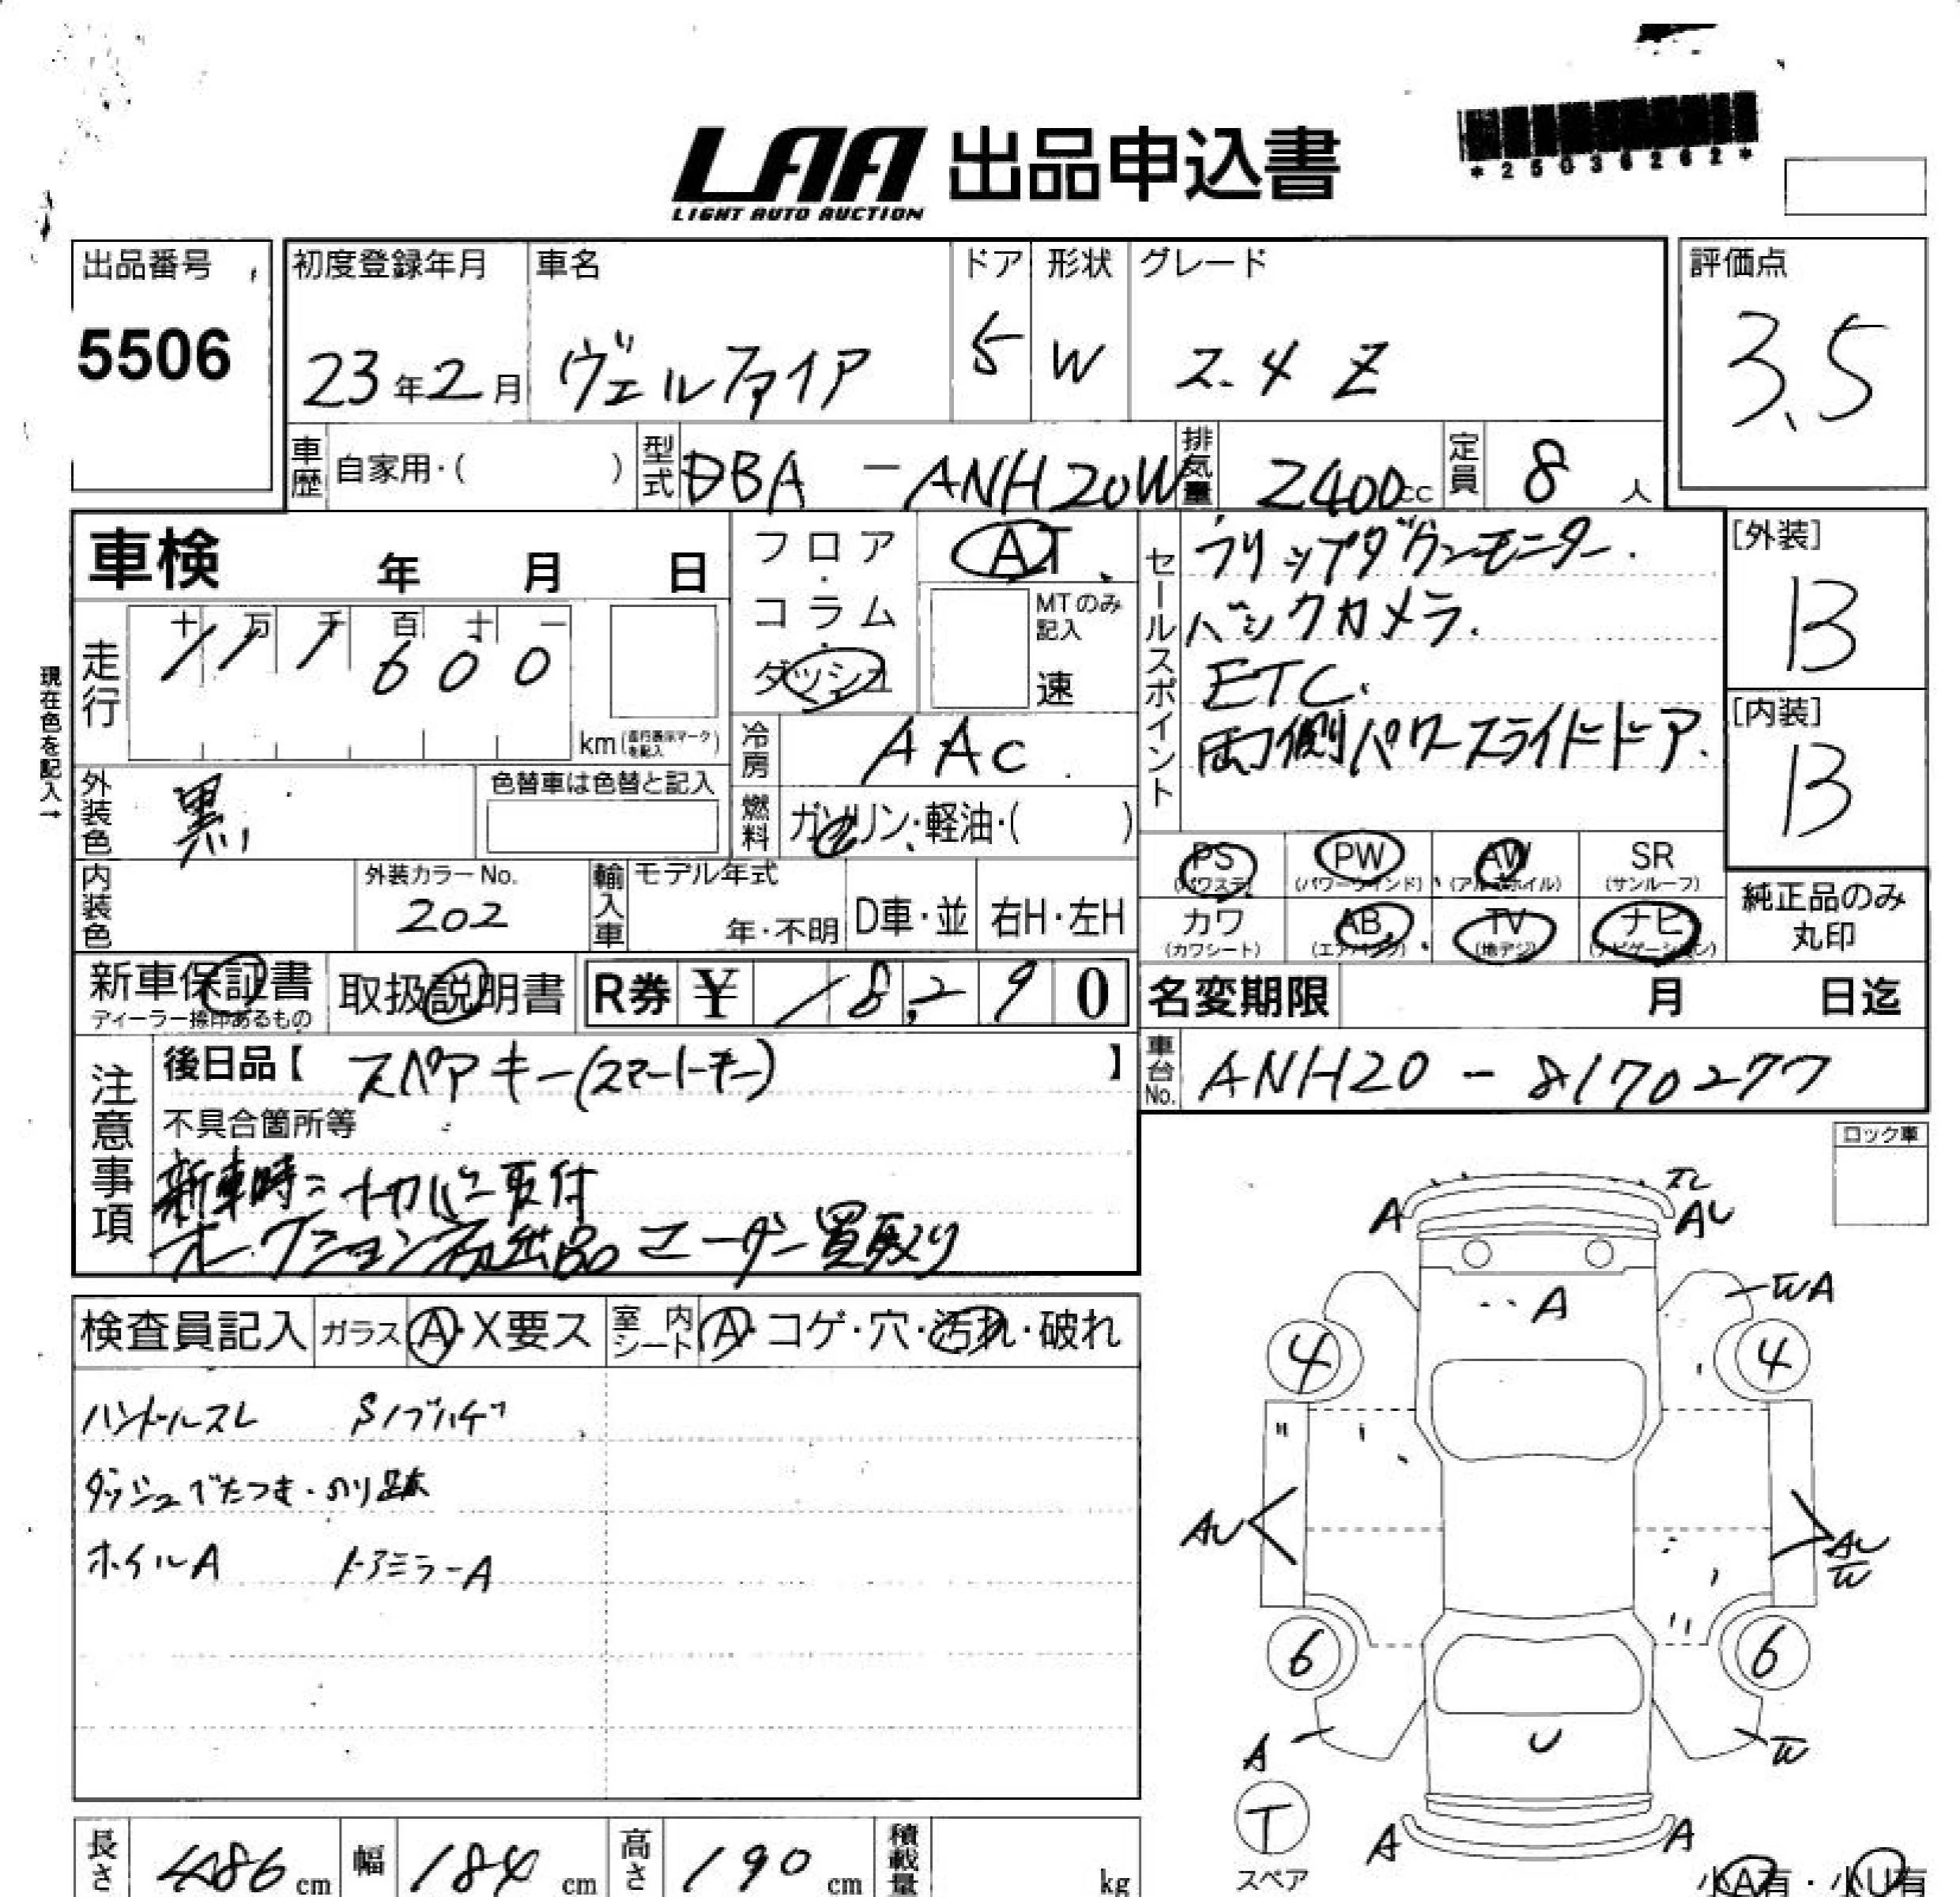 LAA 出品申込書
LIGHT AUTO AUCTION
*25036262*
出品番号
5506
初度登録年月
23年2月
車名
ヴェルファイア
ドア
5
形状
W
グレード
2.4 Z
評価点
3.5
車歴 自家用・( )
型式 DBA-ANH20W
排気量 2400cc
定員 8人
車検 年 月 日
フロア・コラム・ダッシュ
AT
MTのみ記入
速
セールスポイント
フリップダウンモニター.
バックカメラ.
ETC.
両側パワースライドドア.
[外装]
B
[内装]
B
現在色を記入→
走行
十 万 千 百 十 一
111600
km(走行表示マークを記入)
冷房 AAC
外装色 黒
色替車は色替と記入
燃料 ガソリン・軽油・( )
内装色
外装カラーNo.
202
輸入車
モデル年式
年・不明
D車・並
右H・左H
PS (パワステ)
PW (パワーウインド)
AW (アルミホイル)
SR (サンルーフ)
カワ (カワシート)
AB (エアバッグ)
TV (地デジ)
ナビ (ナビゲーション)
純正品のみ丸印
新車保証書
ディーラー捺印あるもの
取扱説明書
R券 ¥ 18,290
名変期限 月 日迄
車台No. ANH20-8170277
注意事項
後日品【 スペアキー(スマートキー) 】
不具合箇所等
オークション初出品 ユーザー買取り
ロック車
検査員記入
ガラス A・X要ス
室内シート A・コゲ・穴・汚れ・破れ
ハンドルスレ Sノブハゲ
ダッシュベたつき・のり跡
ホイルA ドアミラーA
A
AU
A
WA
4
4
AU
AU
W
6
6
A
U
W
T
スペア
A
A
小A有・小U有
長さ 486cm
幅 184cm
高さ 190cm
積載量 kg